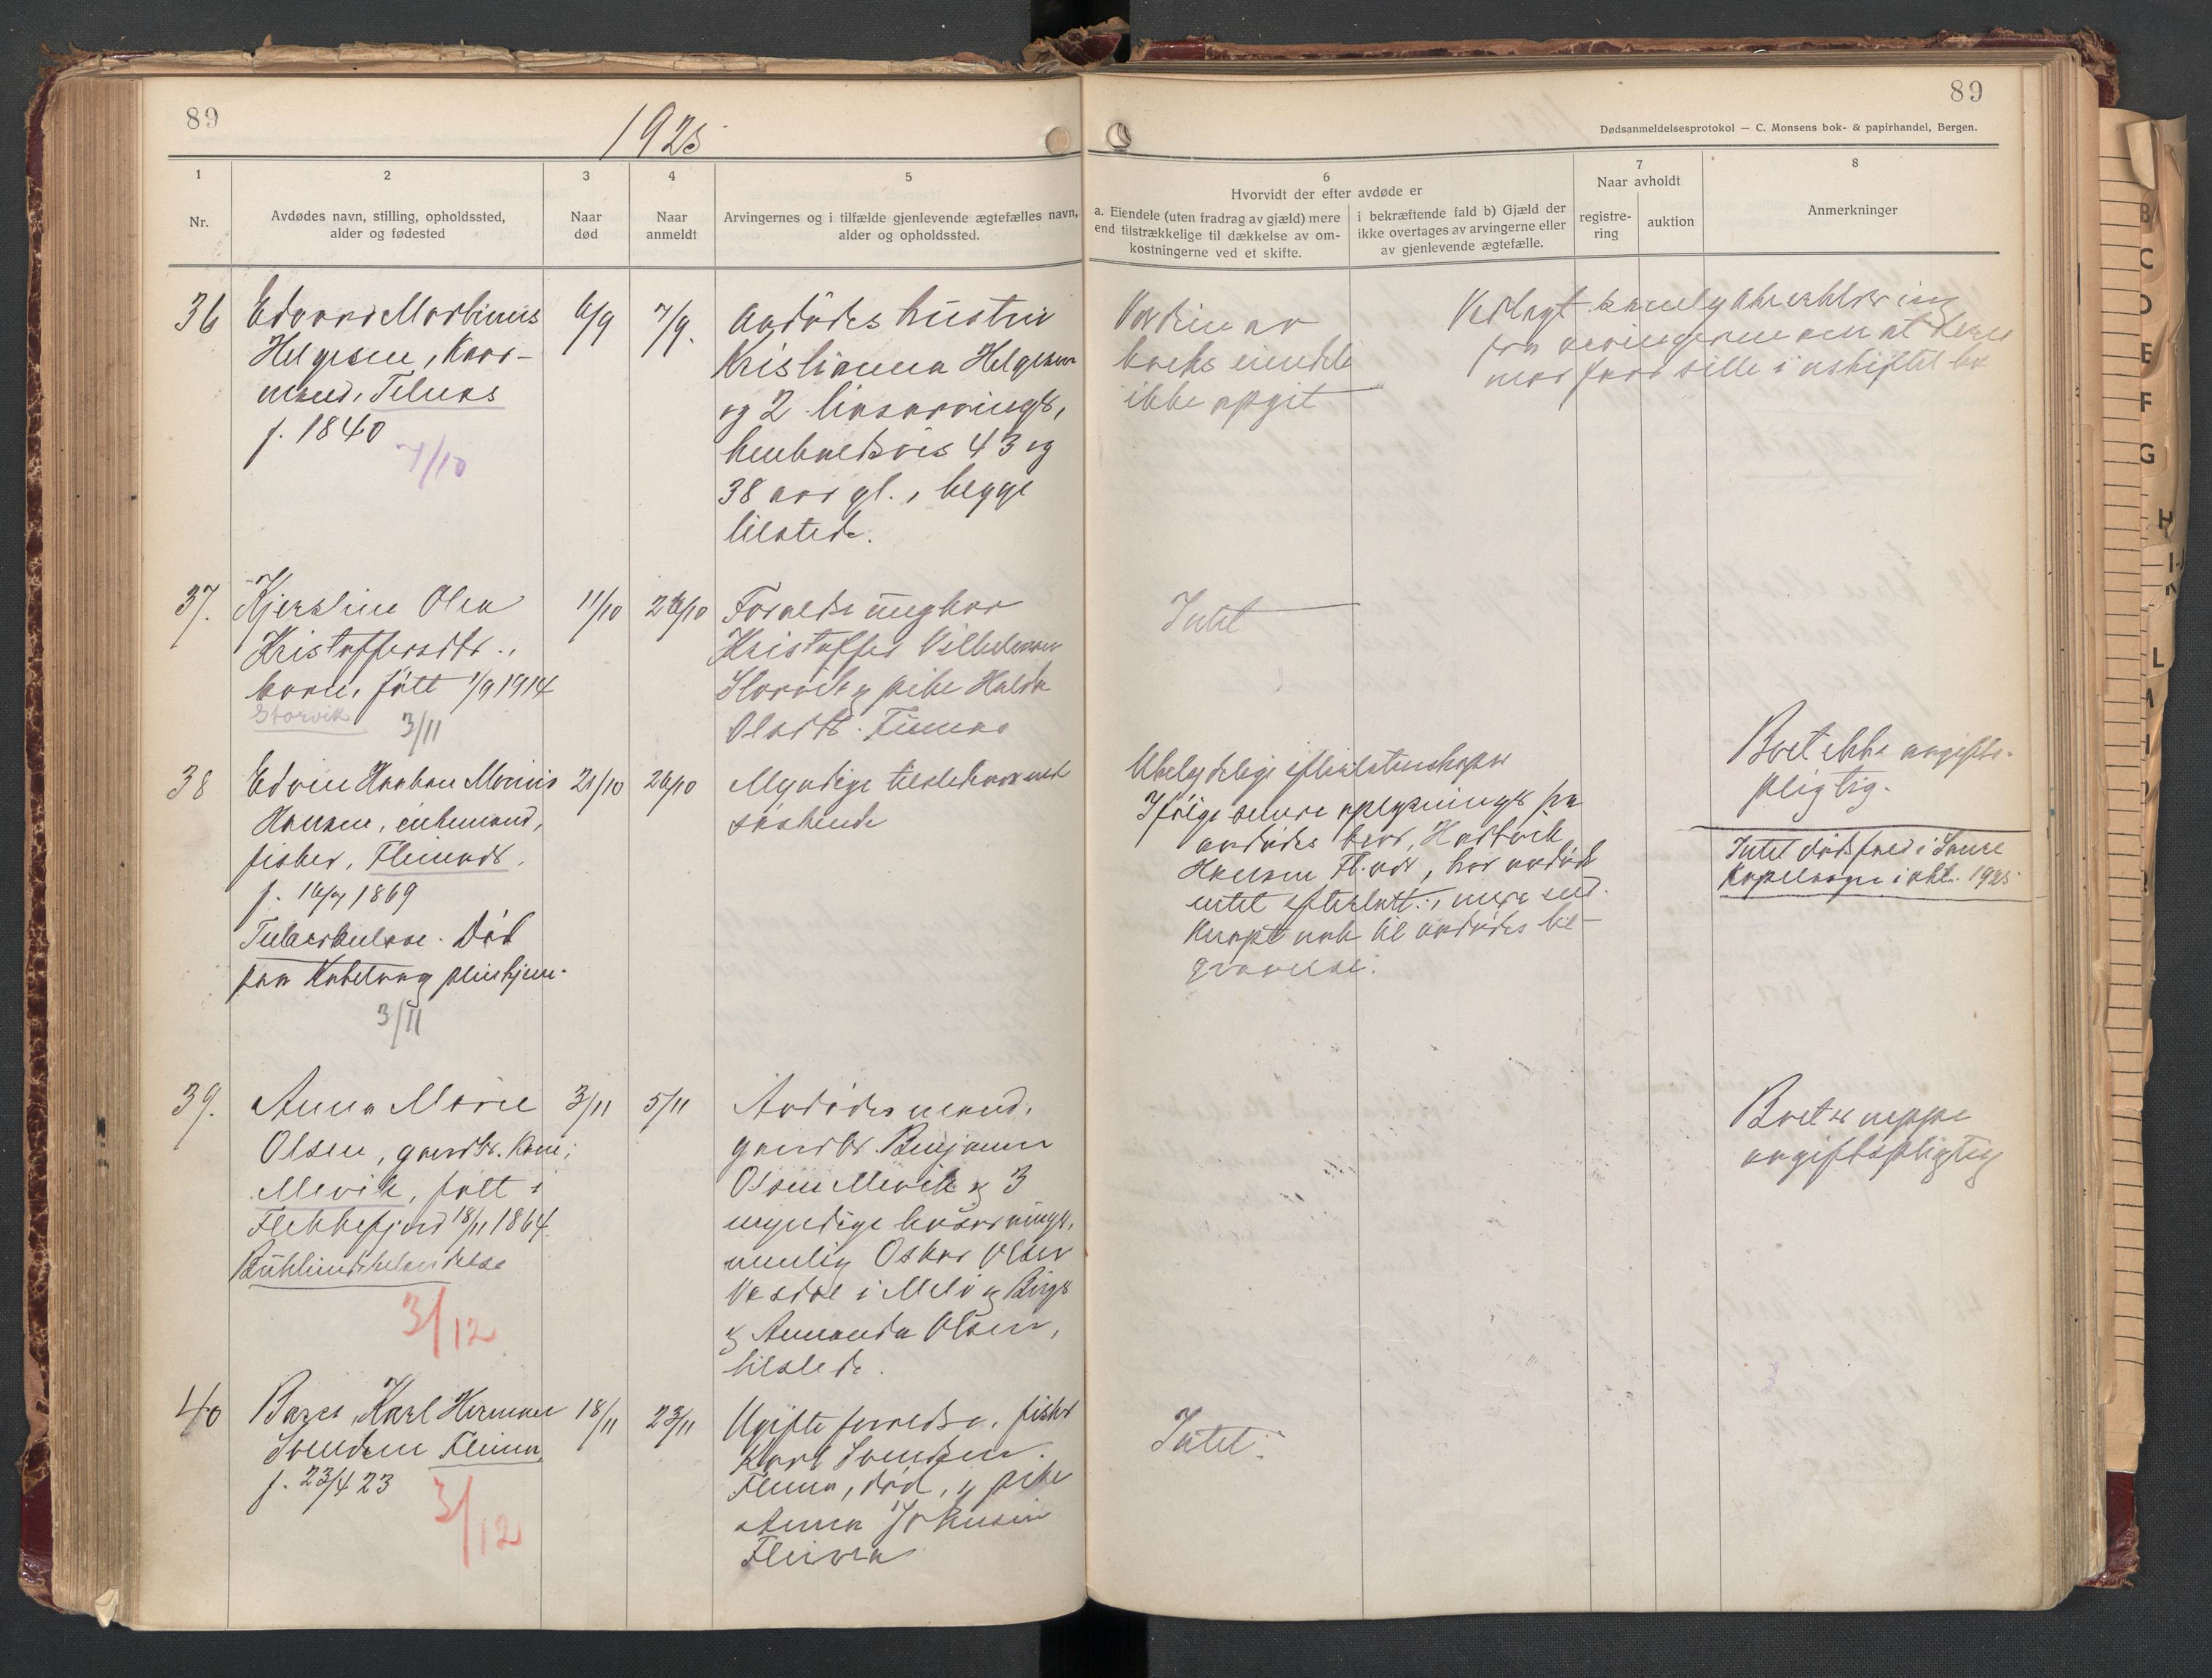 89
1925
1
Nr.
2
Avdødes navn, stilling, opholdssted,
alder og fødested
3
Naar
død
4
Naar
anmeldt
5
Arvingernes og i tilfælde gjenlevende ægtefælles navn,
alder og opholdssted.
36
Edvard Martinus
Helgesen, Kaar-
mand,
f. 1840
7/10
6/9
7/9.
Avdødes hustru
Kristianna Helgesen
og 2 livsarvinger,
henholdsvis 43 og
38 aar gl., begge
tilstede.
37.
Kjerstine Olea
Kristoffersdtr.,
barn, født 1/9 1914
Storvik
3/11
11/10
26/10
Forældre ungkar
Kristoffer Vilhelmsen
Storvik og pike Hulda
Olsdtr.
38
Edvin Haakon Monius
Hansen, enkemand,
fisker,
f. 16/7 1869
Tuberkulose. Død
paa Kabelvaag pleiehjem.
3/11
21/10
26/10
Myndige tilstedeværende
søskende
39.
Anna Marie
Olsen, gaardbr. kone,
Mevik, født i
Flekkefjord 18/11 1864.
3/12
3/11
5/11
Avdødes mand,
gaardbr. Benjamin
Olsen Mevik og 3
myndige livsarvinger,
nemlig Oskar Olsen
i Melø og Birger
og Amanda Olsen,
tilstede.
40
Barn, Karl Herman
Svendsen
f. 23/4 23
3/12
18/11
23/11
Ugifte forældre, fisker
Karl Svendsen
død, og pike
Anna Johnsen
89
Dødsanmeldelsesprotokol — C. Monsens bok- & papirhandel, Bergen.
6
Hvorvidt der efter avdøde er
a. Eiendele (uten fradrag av gjæld) mere
end tilstrækkelige til dækkelse av om-
kostningerne ved et skifte.
i bekræftende fald b) Gjæld der
ikke overtages av arvingerne eller
av gjenlevende ægtefælle.
7
Naar avholdt
registre-
ring
auktion
8
Anmerkninger
Værdien av
boets eiendele
ikke opgit
Vedlagt
fra arvingerne om at deres
mor faar sitte i uskiftet bo
Intet
Ubetydelige efterlatenskaper
Ifølge senere oplysninger fra
avdødes bror, Hartvik
Hansen, har avdøde
intet efterlatt, mere end
knapt nok til avdødes be-
gravelse.
Boet ikke avgifts-
pligtig.
Intet dødsfald i
i okt. 1925
Boet er neppe
avgiftspligtig
Intet.
B
C
D
E
F
G
H
K
L